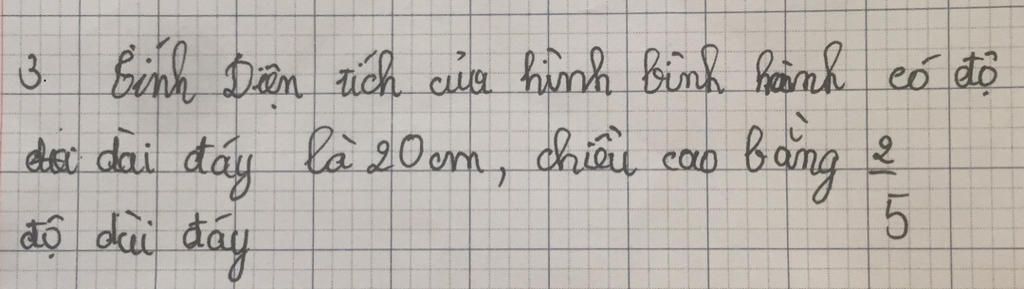 3. Tính Diện tích của hình bình hành có độ
dài đáy là 20cm, chiều cao bằng 2/5
độ dài đáy